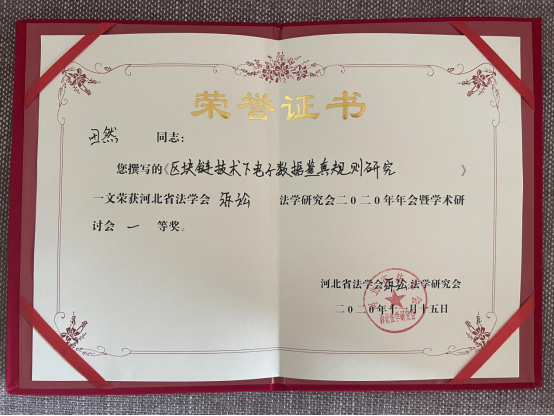 荣誉证书
田然 同志:
您撰写的《区块链技术下电子数据鉴真规则研究》
一文荣获河北省法学会 诉讼 法学研究会二〇二〇年年会暨学术研
讨会 一 等奖。
河北省法学会诉讼法学研究会
二〇二〇年十一月十五日
诉讼法学研究会